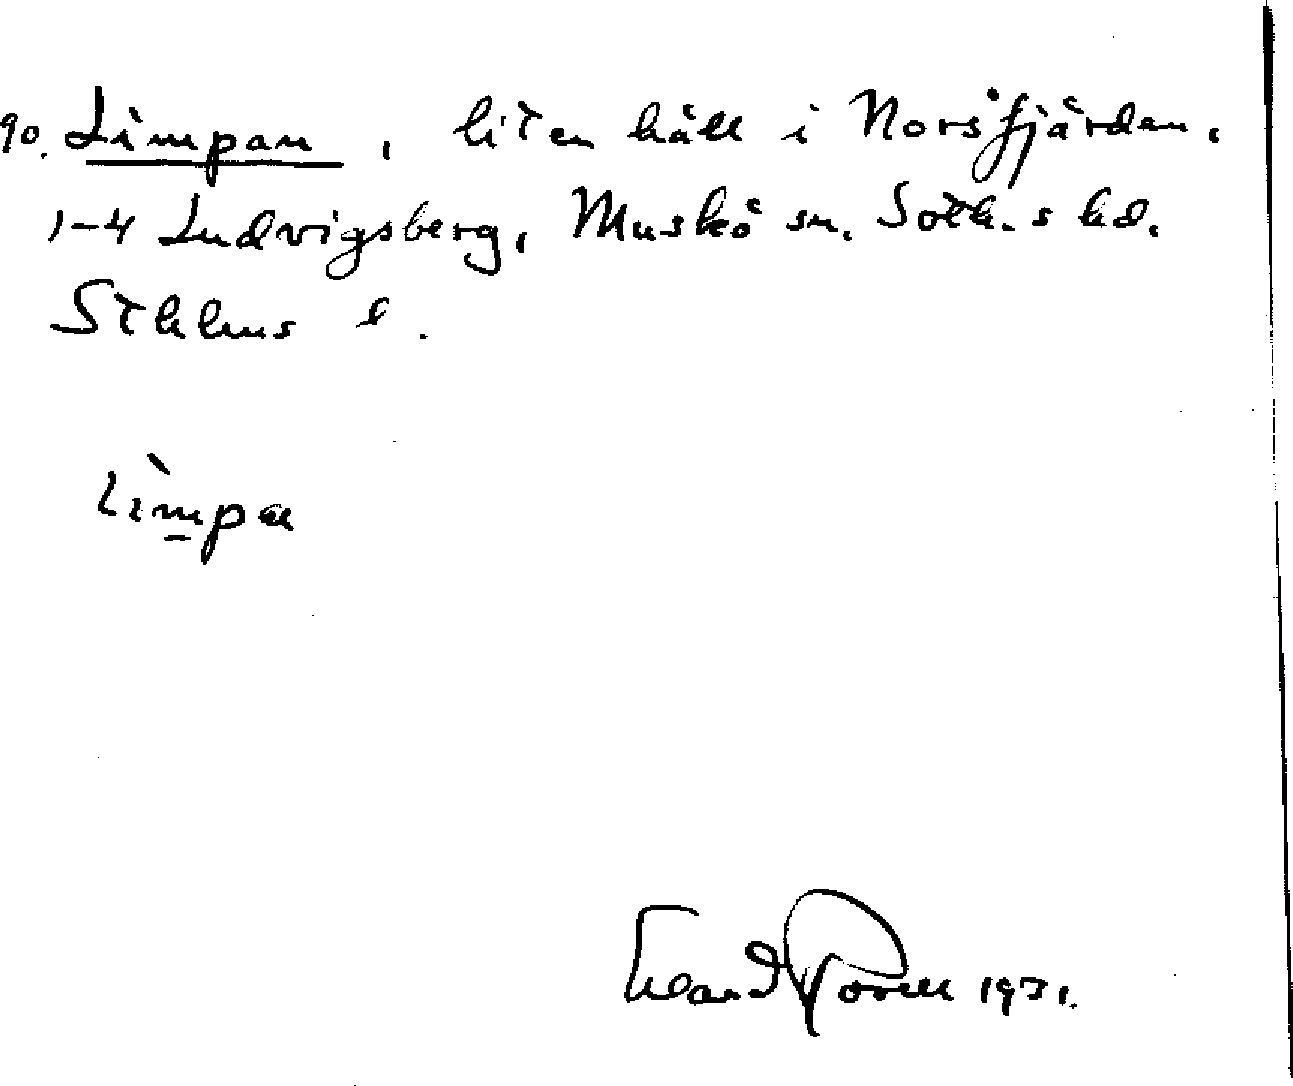 90. Limpan, liten häll i Norsfjärden,
1-4 Ludvigsberg, Muskö sn. Soth.s hd.
Sthlms l.
Limpan
1931.